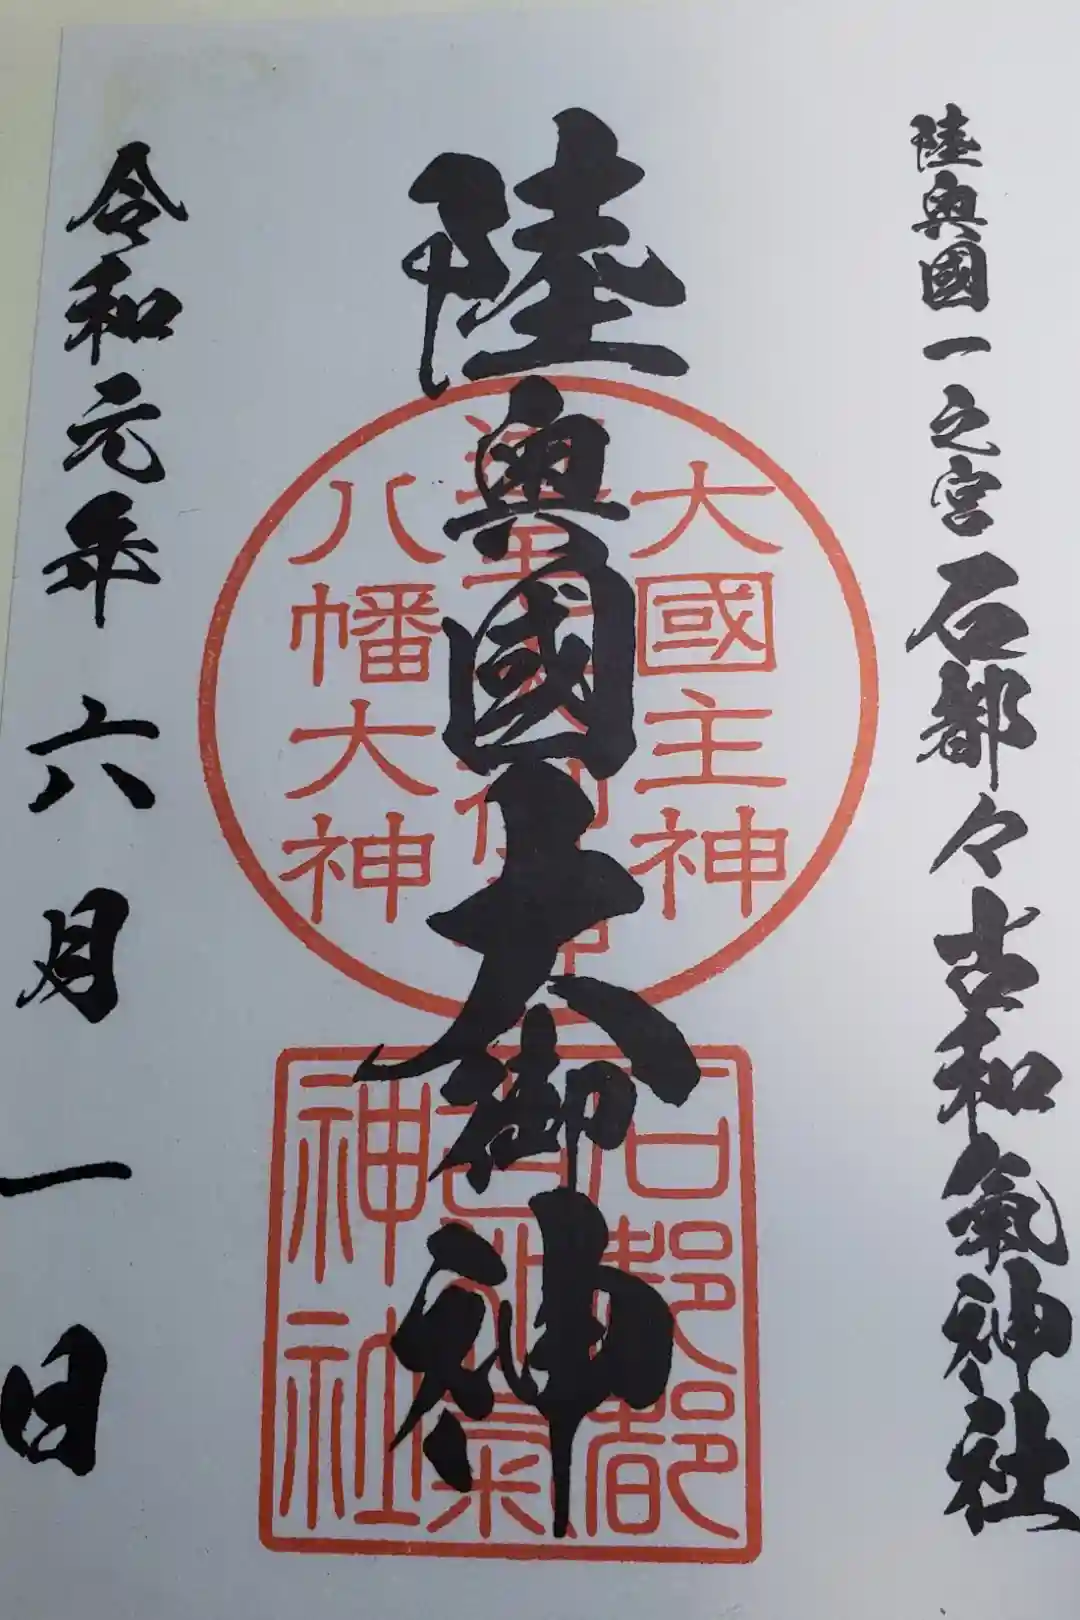 陸奥國一之宮石都々古和氣神社
陸奥國大御神
大國主神
八幡大神
石都都
神社
令和元年六月一日